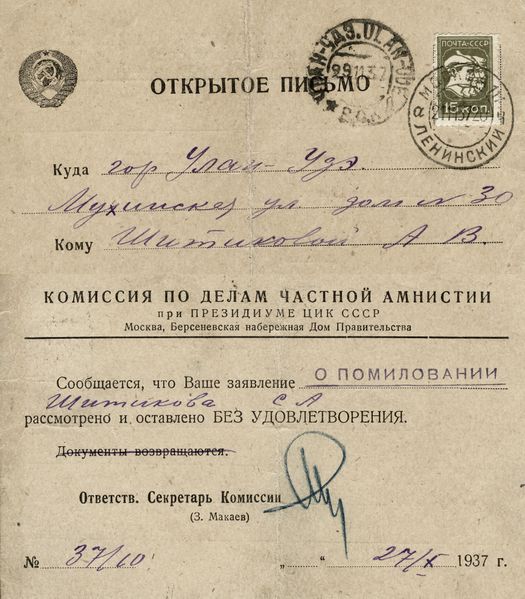 ОТКРЫТОЕ ПИСЬМО
УЛАН-УДЭ. ULAN-UDE
29 11 37
ПОЧТА·СССР
15 КОП.
ЛЕНИНСКИЙ
Куда гор Улан-Удэ
Мухинская ул дом № 30
Кому Шитиковой А В.
КОМИССИЯ ПО ДЕЛАМ ЧАСТНОЙ АМНИСТИИ
при ПРЕЗИДИУМЕ ЦИК СССР
Москва, Берсеневская набережная Дом Правительства
Сообщается, что Ваше заявление О ПОМИЛОВАНИИ
Шитикова С А
рассмотрено и оставлено БЕЗ УДОВЛЕТВОРЕНИЯ.
Документы возвращаются.
Ответств. Секретарь Комиссии
(З. Макаев)
№ 37/10 „ “ 27/X 1937 г.